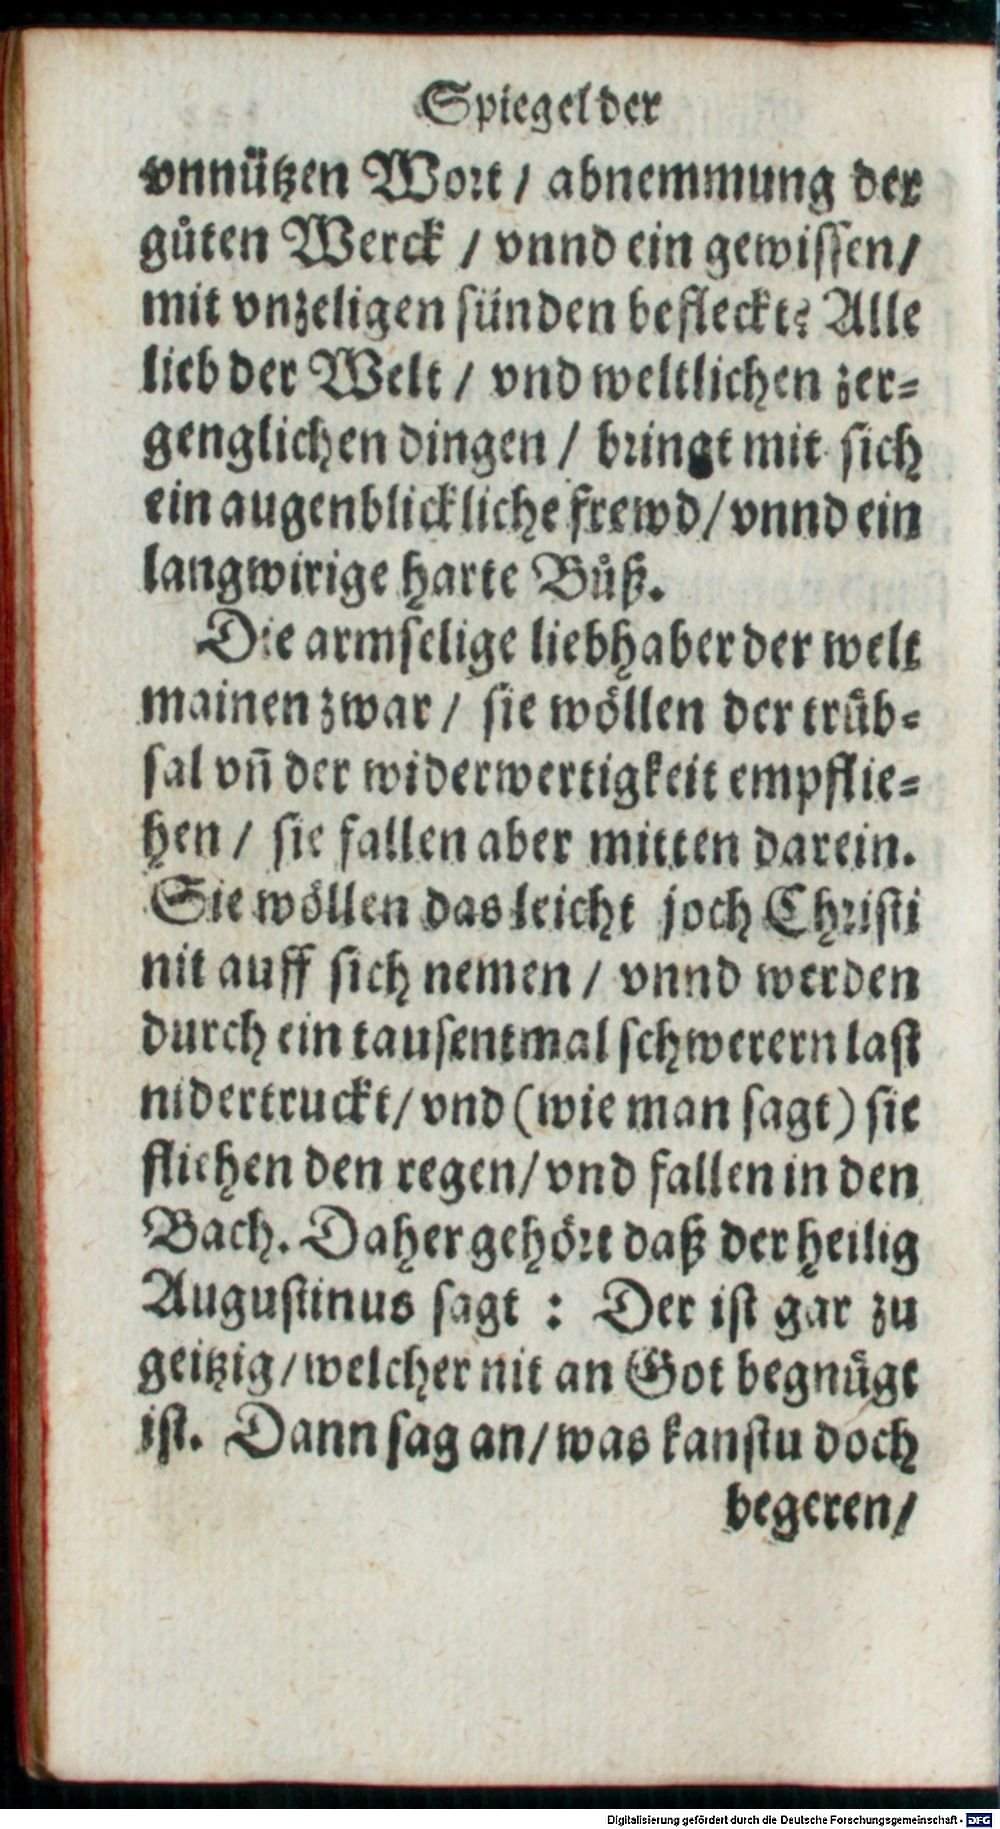 Spiegel der
vnnützen Wort / abnemmung der
gůten Werck / vnnd ein gewissen /
mit vnzeligen sünden befleckt? Alle
lieb der Welt / vnd weltlichen zer-
genglichen dingen / bringt mit sich
ein augenblickliche frewd / vnnd ein
langwirige harte Bůß.
Die armselige liebhaber der welt
mainen zwar / sie wöllen der trüb-
sal vn̄ der widerwertigkeit empflie-
hen / sie fallen aber mitten darein.
Sie wöllen das leicht joch Christi
nit auff sich nemen / vnnd werden
durch ein tausentmal schwerern last
nidertruckt / vnd (wie man sagt) sie
fliehen den regen / vnd fallen in den
Bach. Daher gehört daß der heilig
Augustinus sagt : Der ist gar zu
geitzig / welcher nit an Got begnügt
ist. Dann sag an / was kanstu doch
begeren /
Digitalisierung gefördert durch die Deutsche Forschungsgemeinschaft - DFG